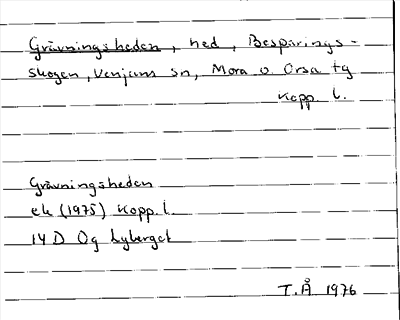 Grävningsheden, hed, Besparings-
skogen, Venjans sn, Mora o. Orsa tg
Kopp. l.
Grävningsheden
ek (1975) Kopp. l.
14 D 0g Lyberget
T.Å 1976